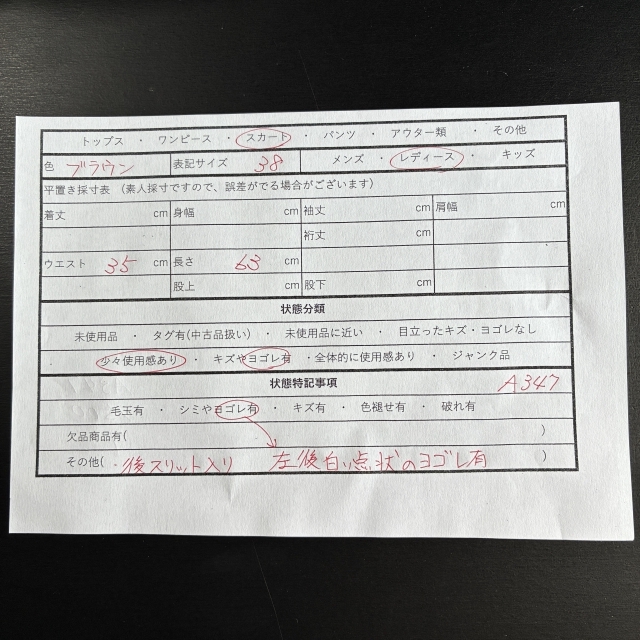 トップス ・ ワンピース ・ スカート ・ パンツ ・ アウター類 ・ その他
色 ブラウン 表記サイズ 38 メンズ ・ レディース ・ キッズ
平置き採寸表 (素人採寸ですので、誤差がでる場合がございます)
着丈 cm 身幅 cm 袖丈 cm 肩幅 cm
裄丈 cm
ウエスト 35 cm 長さ 63 cm
股上 cm 股下 cm
状態分類
未使用品 ・ タグ有(中古品扱い) ・ 未使用品に近い ・ 目立ったキズ・ヨゴレなし
少々使用感あり ・ キズやヨゴレ有 ・全体的に使用感あり ・ ジャンク品
状態特記事項 A347
毛玉有 ・ シミやヨゴレ有 ・ キズ有 ・ 色褪せ有 ・ 破れ有
欠品商品有( )
その他( ・後スリット入り 左後白い点状のヨゴレ有 )